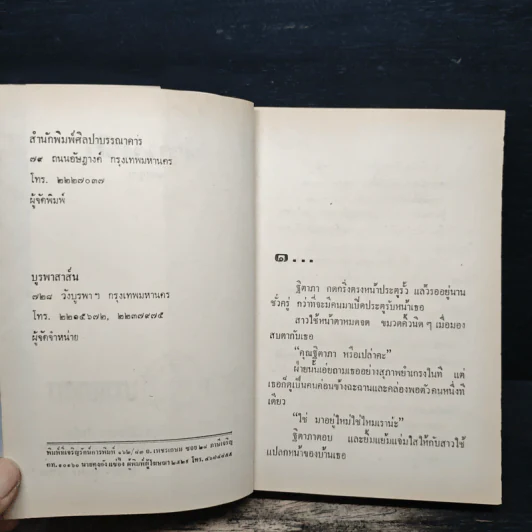 สำนักพิมพ์ศิลปาบรรณาคาร
๗๙ ถนนอัษฎางค์ กรุงเทพมหานคร
โทร. ๒๒๒๗๐๓๗
ผู้จัดพิมพ์
บูรพาสาส์น
๗๒๘ วังบูรพาฯ กรุงเทพมหานคร
โทร. ๒๒๑๕๖๗๒, ๒๒๓๗๙๗๕
ผู้จัดจำหน่าย
พิมพ์ที่เจริญรัตน์การพิมพ์
๑...
ฐิตาภา กดกริ่งตรงหน้าประตูรั้ว แล้วรออยู่นาน
ชั่วครู่ กว่าที่จะมีคนมาเปิดประตูรับหน้าเธอ
สาวใช้หน้าตาหมดจด ขมวดคิ้วนิดๆ เมื่อมอง
สบตากับเธอ
“คุณฐิตาภา หรือเปล่าคะ”
ฝ่ายนั้นเอ่ยถามเธออย่างสุภาพยำเกรงในที แต่
เธอก็ดูเป็นคนค่อนข้างฉะฉานและคล่องพอตัวคนหนึ่งที
เดียว
“ใช่ มาอยู่ใหม่ใช่ไหมเราน่ะ”
ฐิตาภาตอบ และยิ้มแย้มแจ่มใสให้กับสาวใช้
แปลกหน้าของบ้านเธอ